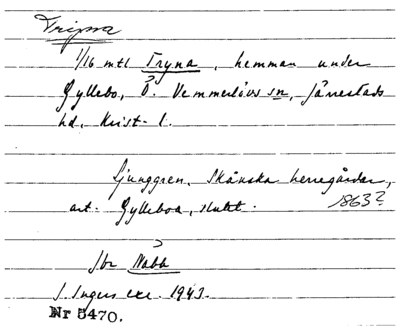 Tryna
1/16 mtl Tryna, hemman under
Gyllebo, Ö. Vemmerlövs sn, Järrestads
hd, Krist. l.
Ljunggren. Skånska herregårdar,
art. Gylleboa, slutet. 1863?
Jbr Nabb
J. Ingers exc. 1943.
Nr 5470.